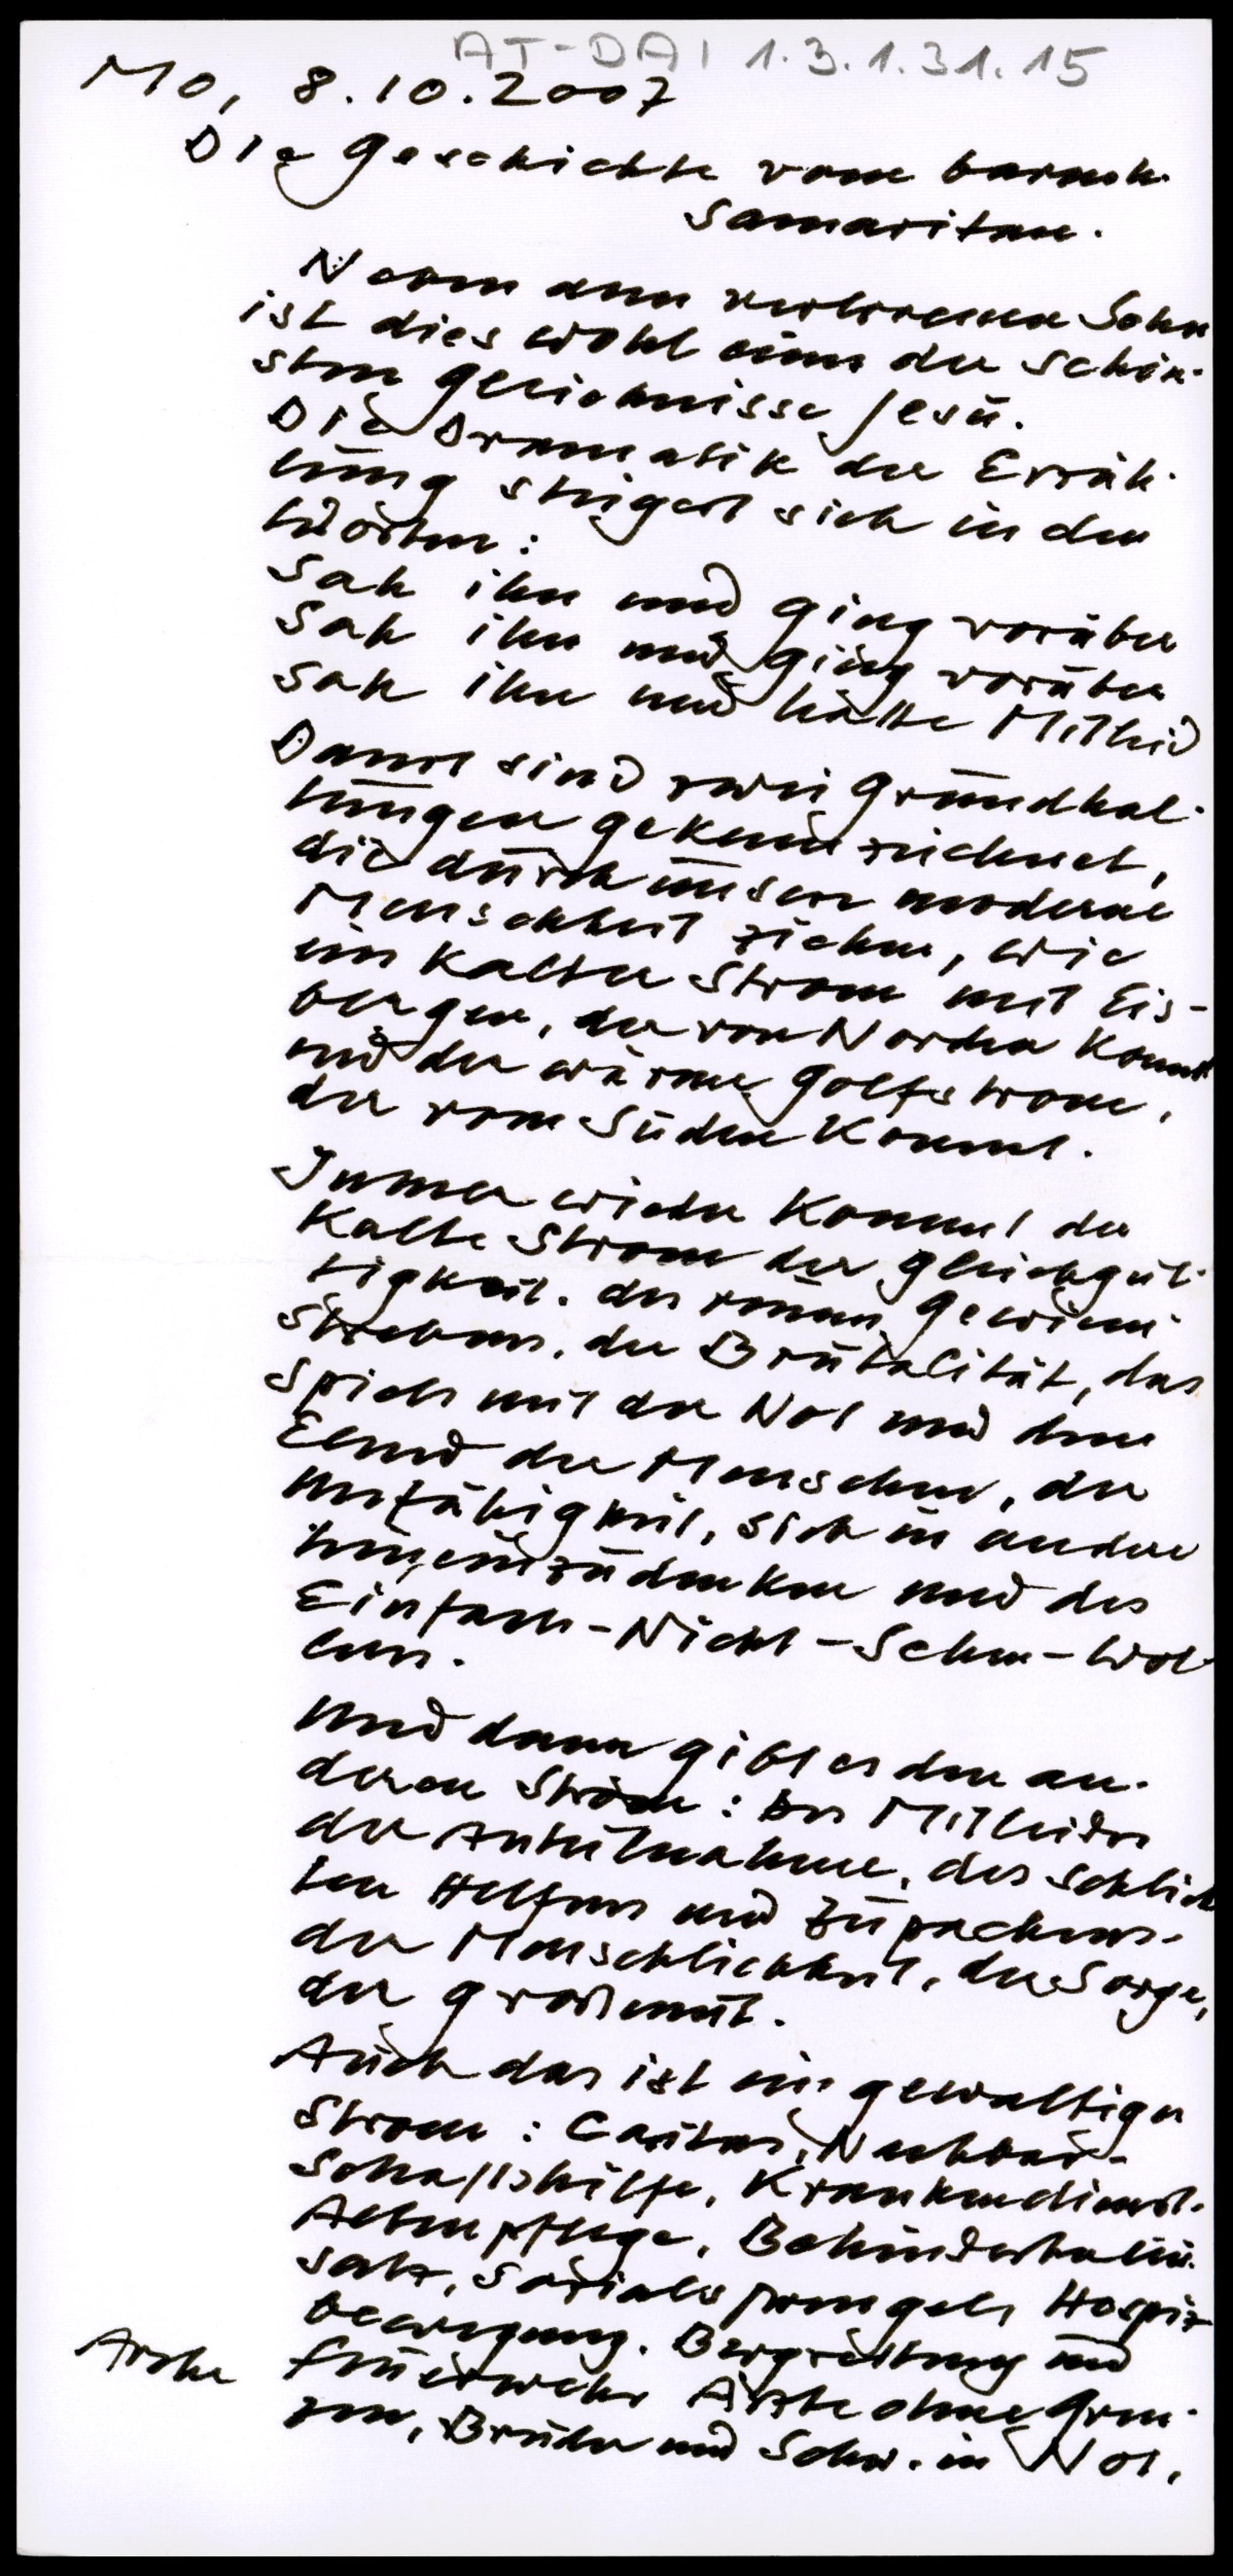 AT-DAI 1.3.1.31.15
Mo, 8.10.2007
Die Geschichte vom barmh.
Samaritan.
Neben dem verlorenen Sohn
ist dies wohl eines der schön-
sten Gleichnisse Jesu.
Die Dramatik der Erzäh-
lung steigert sich in den
Worten:
Sah ihn und ging vorüber
Sah ihn und ging vorüber
Sah ihn und hatte Mitleid
Damit sind zwei Grundhal-
tungen gekennzeichnet,
die durch unsere moderne
Menschheit ziehen, wie
ein kalter Strom mit Eis-
bergen, der von Norden kommt
und der warme Golfstrom,
der vom Süden kommt.
Immer wieder kommt der
kalte Strom der Gleichgül-
tigkeit, des reinen Gewinn-
strebens, der Brutalität, des
Spiels mit der Not und dem
Elend der Menschen, der
Unfähigkeit, sich in andere
hineinzudenken und des
Einfach-Nicht-Sehen-Wol-
lens.
Und dann gibt es den an-
deren Strom: Des Mitleides
der Anteilnahme, des schlich-
ten Helfens und Zupackens.
der Menschlichkeit, der Sorge,
der Großmut.
Auch das ist ein gewaltiger
Strom: Caritas, Nachbar-
schaftshilfe, Krankendienst.
Altenpflege, Behindertenein-
satz, Sozialsprengel, Hospiz-
bewegung. Bergrettung und
Arche Feuerwehr Ärzte ohne Gren-
zen, Bruder und Schw. in Not,